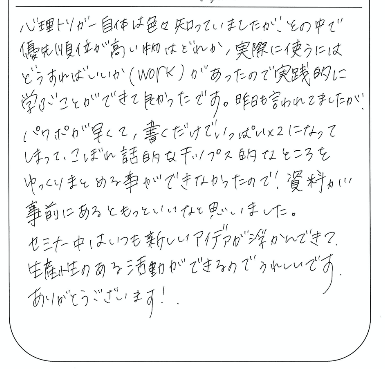 心理トリガー自体は色々知っていましたが、その中で
優先順位が高い物はどれか、実際に使うには
どうすればいいか(work)があったので実践的に
学ぶことができて良かったです。昨日も言われてましたが、
パワポが早くて、書くだけでいっぱい×2になって
しまって、こぼれ話的なチップス的なところを
ゆっくりまとめる事ができなかったので、資料が
事前にあるともっといいなと思いました。
セミナー中はいつも新しいアイデアが浮かんできて、
生産性のある活動ができるのでうれしいです。
ありがとうございます!